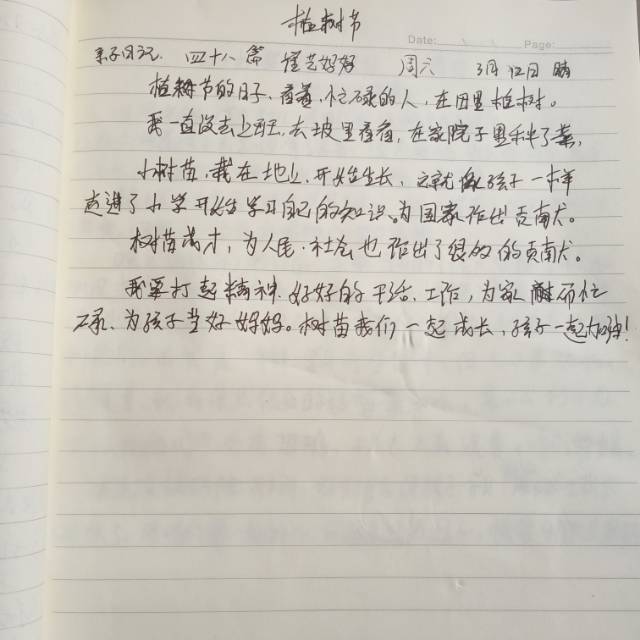 植树节
Date: Page:
亲子日记. 四十八篇 好好 周六 3月12日 晴
植树节的日子,看着,忙碌的人,在田里植树。
我一直没去上班,去坡里看看,在家院子里种了菜,
小树苗,栽在地上,开始生长,这就像孩子一样
走进了小学开始学习自己的知识,为国家作出贡献。
树苗成才,为人民.社会也作出了很多的贡献。
我要打起精神,好好的干活.工作,为家 而忙
碌、为孩子当好妈妈。树苗我们一起成长,孩子一起加油!